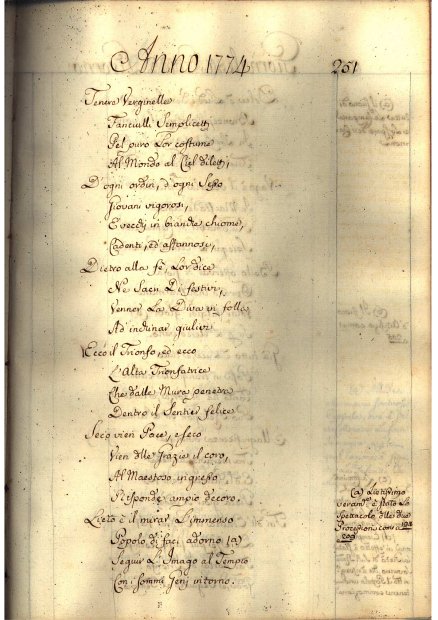 Anno 1774
251
Tenere Verginelle
Fanciulli Semplicetti
Pel puro Lor costume
Al Mondo al Ciel diletti,
D'ogni ordin, d'ogni Sesso
Giovani vigorosi,
E vecchj in bianche chiome,
Cadenti, ed affannosi,
Dietro alla fè, Lor dice
Ne Sacri Dì festivi,
Venner La Diva in folla
Ad inchinar giulivi
Ecco il Trionfo, ed ecco
L'Alta Trionfatrice
Che dalle Mura penetra
Dentro il Sentier felice
Seco vien Pace, e seco
Vien dlle Grazie il coro,
Al Maestoso ingresso
Risponde ampio decoro.
Lieto è il mirar L'immenso
Popolo di faci adorno (a)
Seguir L'Imago al Tempio
Con i sommi Genj intorno.
(a) Lietissimo
veram.e è stato Lo
Spettacolo dlle due
Processioni come a
203